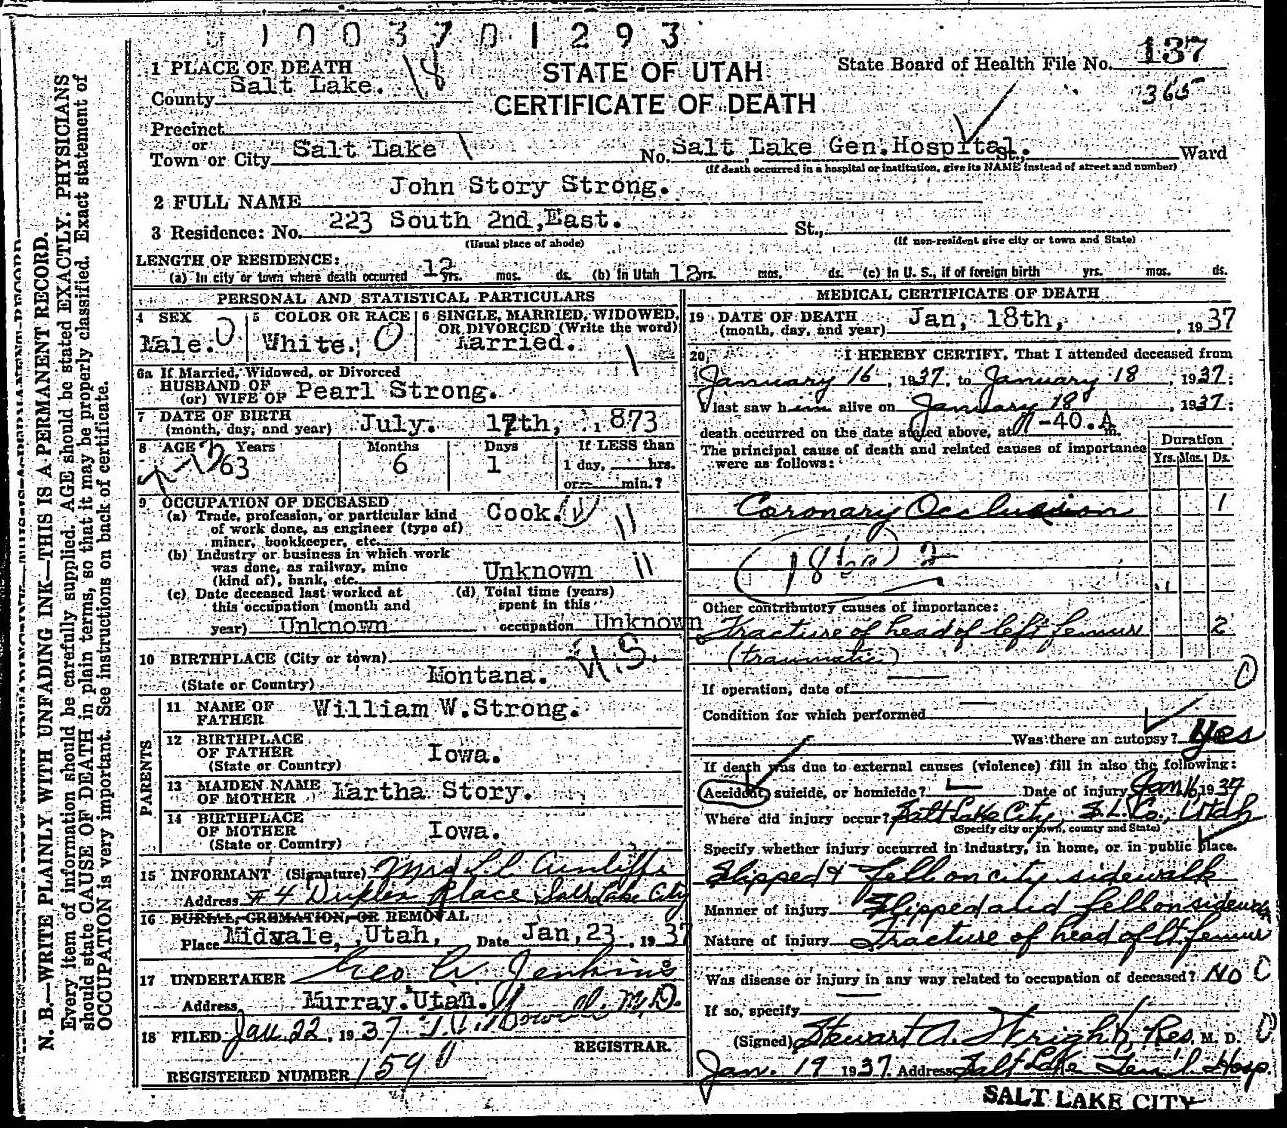 1003701293
STATE OF UTAH
CERTIFICATE OF DEATH
State Board of Health File No. 137
365
1 PLACE OF DEATH
County Salt Lake. 18
Precinct
or
Town or City Salt Lake
No. Salt Lake Gen. Hospital. St., Ward
(If death occurred in a hospital or institution, give its NAME instead of street and number)
2 FULL NAME John Story Strong.
3 Residence: No. 223 South 2nd, East. St.,
(Usual place of abode) (If non-resident give city or town and State)
LENGTH OF RESIDENCE:
(a) In city or town where death occurred 12 yrs. mos. ds. (b) In Utah 12 yrs. mos. ds. (c) In U. S., if of foreign birth yrs. mos. ds.
PERSONAL AND STATISTICAL PARTICULARS
4 SEX
Male. 0
5 COLOR OR RACE
White. 0
6 SINGLE, MARRIED, WIDOWED, OR DIVORCED (Write the word)
Married.
6a If Married, Widowed, or Divorced
HUSBAND OF
(or) WIFE OF Pearl Strong.
7 DATE OF BIRTH
(month, day, and year) July. 17th, 1,873
8 AGE Years Months Days If LESS than
63 6 1 1 day, hrs.
or min.?
9 OCCUPATION OF DECEASED
(a) Trade, profession, or particular kind of work done, as engineer (type of) miner, bookkeeper, etc. Cook.
(b) Industry or business in which work was done, as railway, mine (kind of), bank, etc. Unknown
(c) Date deceased last worked at this occupation (month and year) Unknown
(d) Total time (years) spent in this occupation Unknown
10 BIRTHPLACE (City or town) U.S.
(State or Country) Montana.
PARENTS
11 NAME OF FATHER William W. Strong.
12 BIRTHPLACE OF FATHER
(State or Country) Iowa.
13 MAIDEN NAME OF MOTHER Martha Story.
14 BIRTHPLACE OF MOTHER
(State or Country) Iowa.
15 INFORMANT (Signature) Mrs
Address #4 Place Salt Lake City
16 BURIAL, CREMATION, OR REMOVAL
Place Midvale, Utah, Date Jan, 23, 1937
17 UNDERTAKER Geo W Jenkins
Address Murray. Utah.
18 FILED Jan 22, 1937 M.D.
REGISTRAR.
REGISTERED NUMBER 159
MEDICAL CERTIFICATE OF DEATH
19 DATE OF DEATH
(month, day, and year) Jan, 18th, , 1937
20 I HEREBY CERTIFY, That I attended deceased from
January 16, 1937, to January 18, 1937:
I last saw him alive on January 18, 1937:
death occurred on the date stated above, at -40. A m.
The principal cause of death and related causes of importance were as follows:
Duration
Yrs. Mos. Ds.
Coronary Occlusion 1
Other contributory causes of importance:
Fracture of head of left femur 2
(traumatic)
If operation, date of
Condition for which performed
Was there an autopsy? Yes
If death was due to external causes (violence) fill in also the following:
Accident, suicide, or homicide? Date of injury Jan 16 1937
Where did injury occur? Salt Lake City, S.L. Co., Utah
(Specify city or town, county and State)
Specify whether injury occurred in industry, in home, or in public place.
Slipped & fell on city sidewalk
Manner of injury Slipped and fell on sidewalk
Nature of injury Fracture of head of lt femur
Was disease or injury in any way related to occupation of deceased? NO
If so, specify
(Signed) Stewart A. Wright, Res. M. D.
Jan. 19 1937. Address Salt Lake Gen'l. Hosp.
SALT LAKE CITY
N. B.—WRITE PLAINLY WITH UNFADING INK—THIS IS A PERMANENT RECORD.
Every item of information should be carefully supplied. AGE should be stated EXACTLY. PHYSICIANS
should state CAUSE OF DEATH in plain terms, so that it may be properly classified. Exact statement of
OCCUPATION is very important. See instructions on back of certificate.